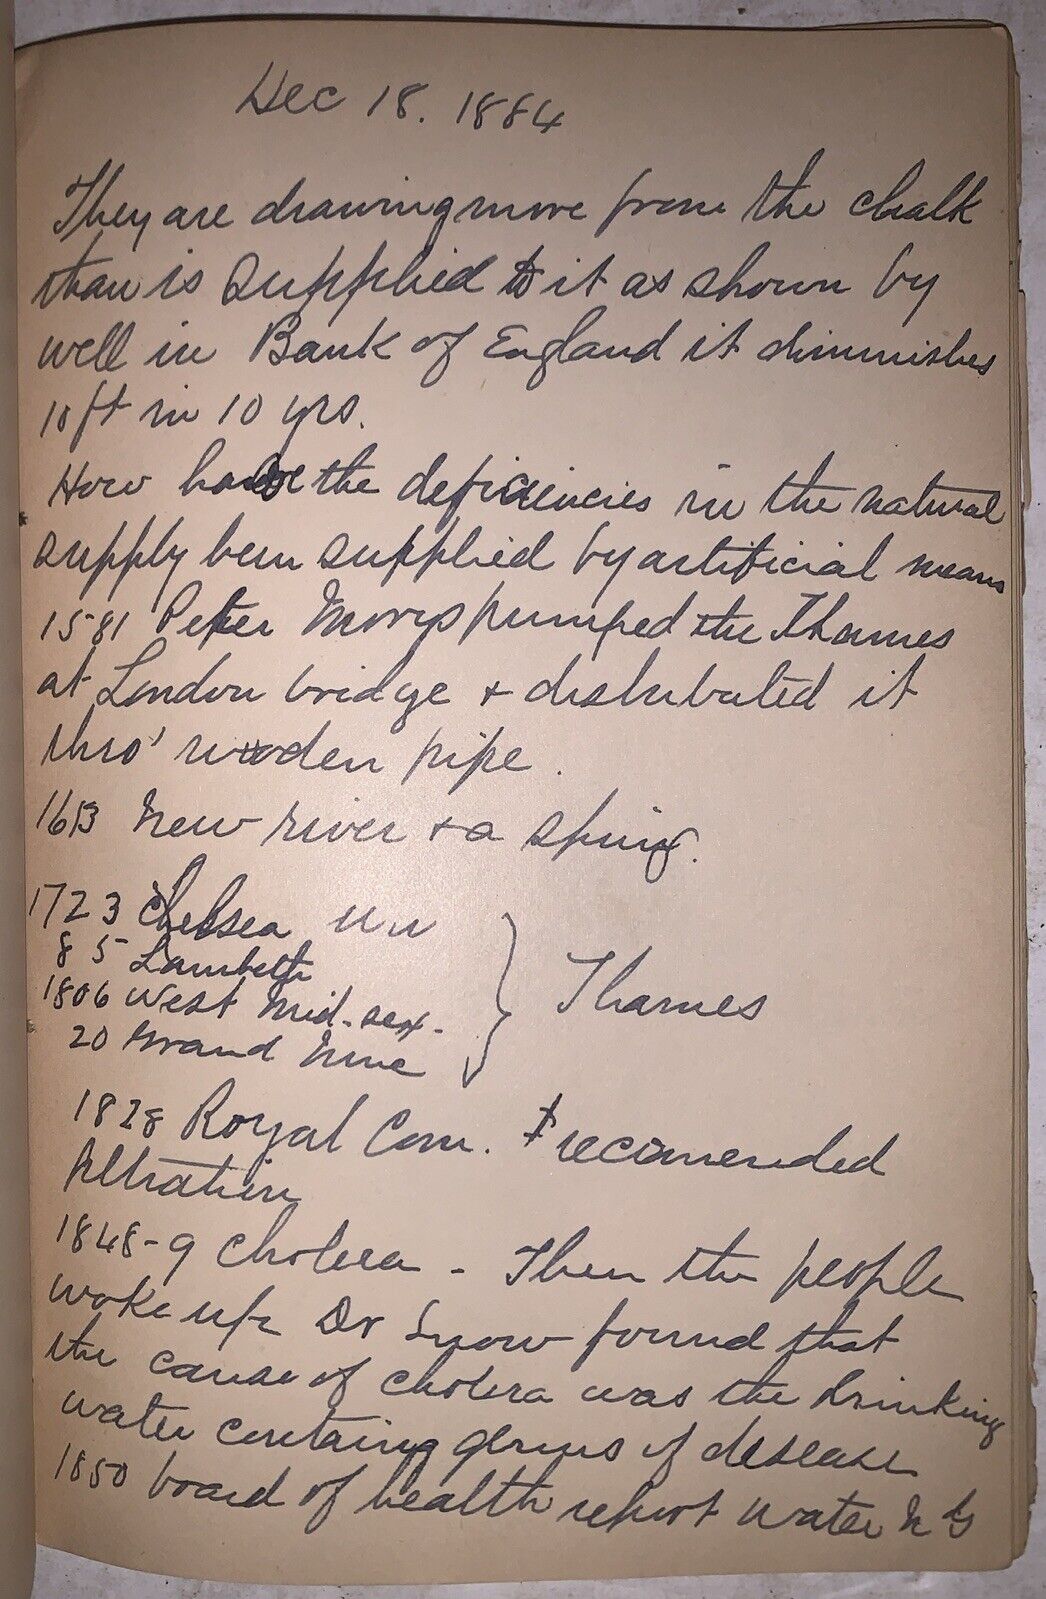 Dec 18. 1884
They are drawing more from the chalk
than is supplied to it as shown by
well in Bank of England it diminishes
10 ft in 10 yrs.
How have the deficiencies in the natural
supply been supplied by artificial means
1581 Peter Morrys pumped the Thames
at London bridge + distributed it
thro' wooden pipe.
1613 New river + a spring.
1723 Chelsea
85 Lambeth
1806 West Mid-sex-
20 Grand
Thames
1828 Royal Com. recomended
filtration
1848-9 Cholera - Then the people
woke up Dr Snow found that
the cause of cholera was the drinking
water containing germs of disease
1850 board of health report water N G